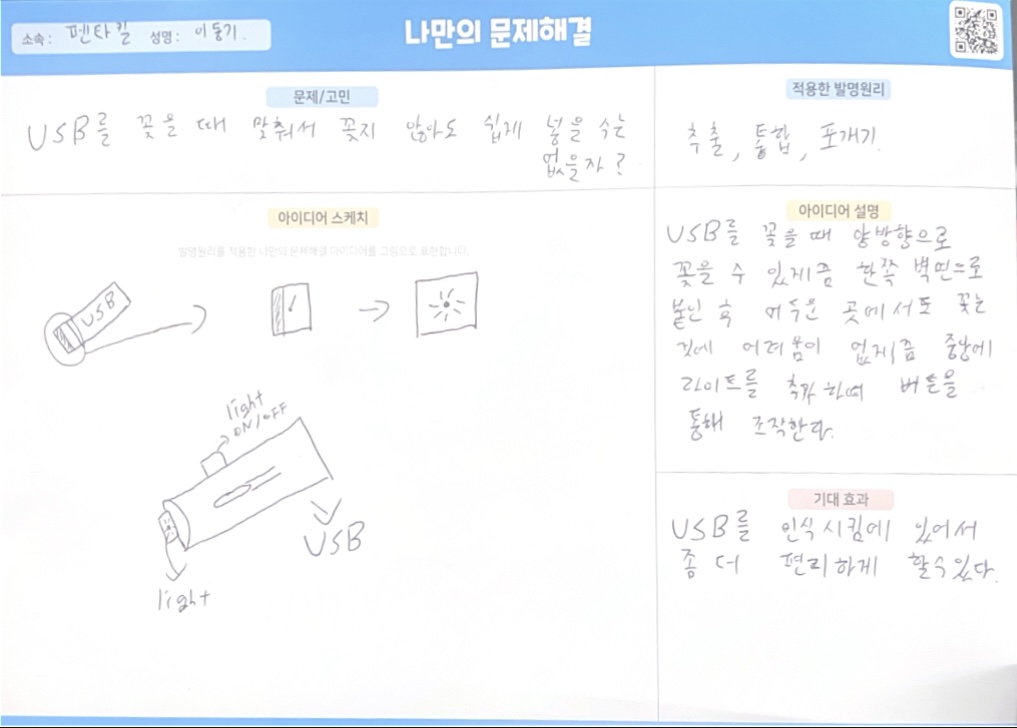 소속 : 펜타킬 성명 : 이동기.
나만의 문제해결
문제/고민
USB를 꽂을 때 맞춰서 꽂지 않아도 쉽게 넣을 수는
없을까?
적용한 발명원리
추출, 통합, 포개기.
아이디어 스케치
발명원리를 적용한 나만의 문제해결 아이디어를 그림으로 표현합니다.
USB
light
ON/OFF
USB
light
아이디어 설명
USB를 꽂을 때 양방향으로
꽂을 수 있게끔 한쪽 벽면으로
붙인 후 어두운 곳에서도 꽂는
것에 어려움이 없게끔 중앙에
라이트를 추가하며 버튼을
통해 조작한다.
기대 효과
USB를 인식시킴에 있어서
좀 더 편리하게 할수있다.